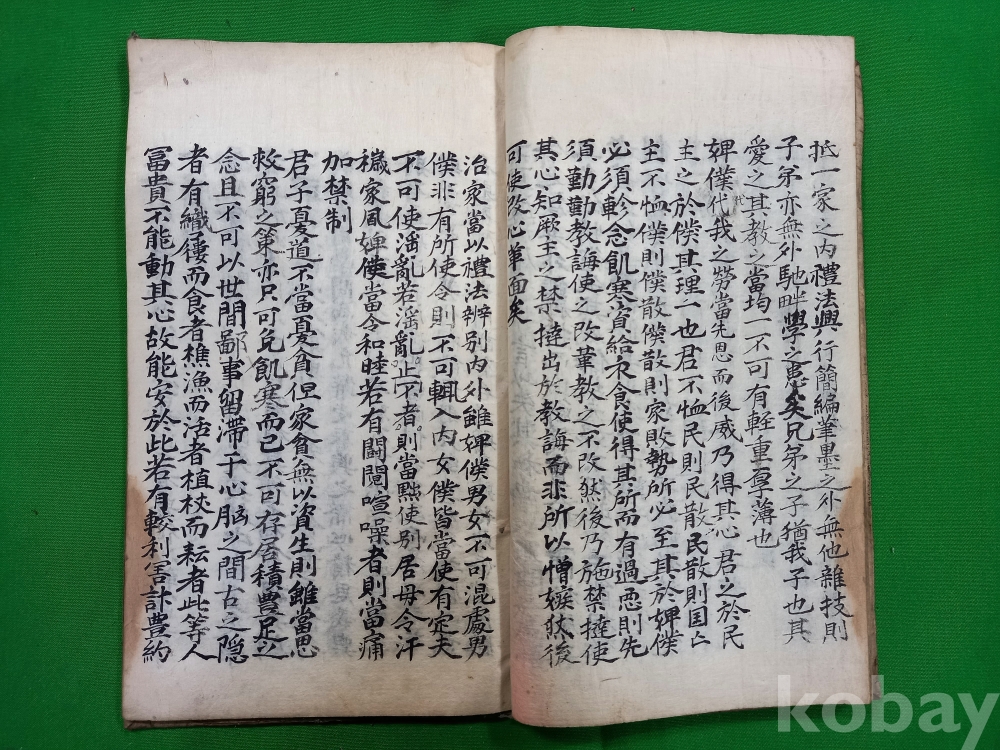 抵一家之內禮法興行簡編筆墨之外無他雜技則
子弟亦無外馳畔學之患矣兄弟之子猶我子也其
愛之其教之當均一不可有輕重厚薄也
婢僕代我之勞當先恩而後威乃得其心君之於民
主之於僕其理一也君不恤民則民散民散則国亡
主不恤僕則僕散僕散則家敗勢所必至其於婢僕
必須軫念飢寒資給衣食使得其所而有過惡則先
須勤勤教誨使之改革教之不改然後乃施禁撻使
其心知厥主之禁撻出於教誨而非所以憎嫉然後
可使改心革面矣
治家當以禮法辨別內外雖婢僕男女不可混處男
僕非有所使令則不可輒入內女僕皆當使有定夫
不可使滛亂若滛亂不止者則當黜使別居毋令汙
穢家風婢僕當令和睦若有鬪鬩喧噪者則當痛
加禁制
君子憂道不當憂貧但家貧無以資生則雖當思
救窮之策亦只可免飢寒而已不可存居積豊足之
念且不可以世間鄙事留滯于心胸之間古之隠
者有織屨而食者樵漁而活者植杖而耘者此等人
冨貴不能動其心故能安於此若有較利害計豊約
kobay